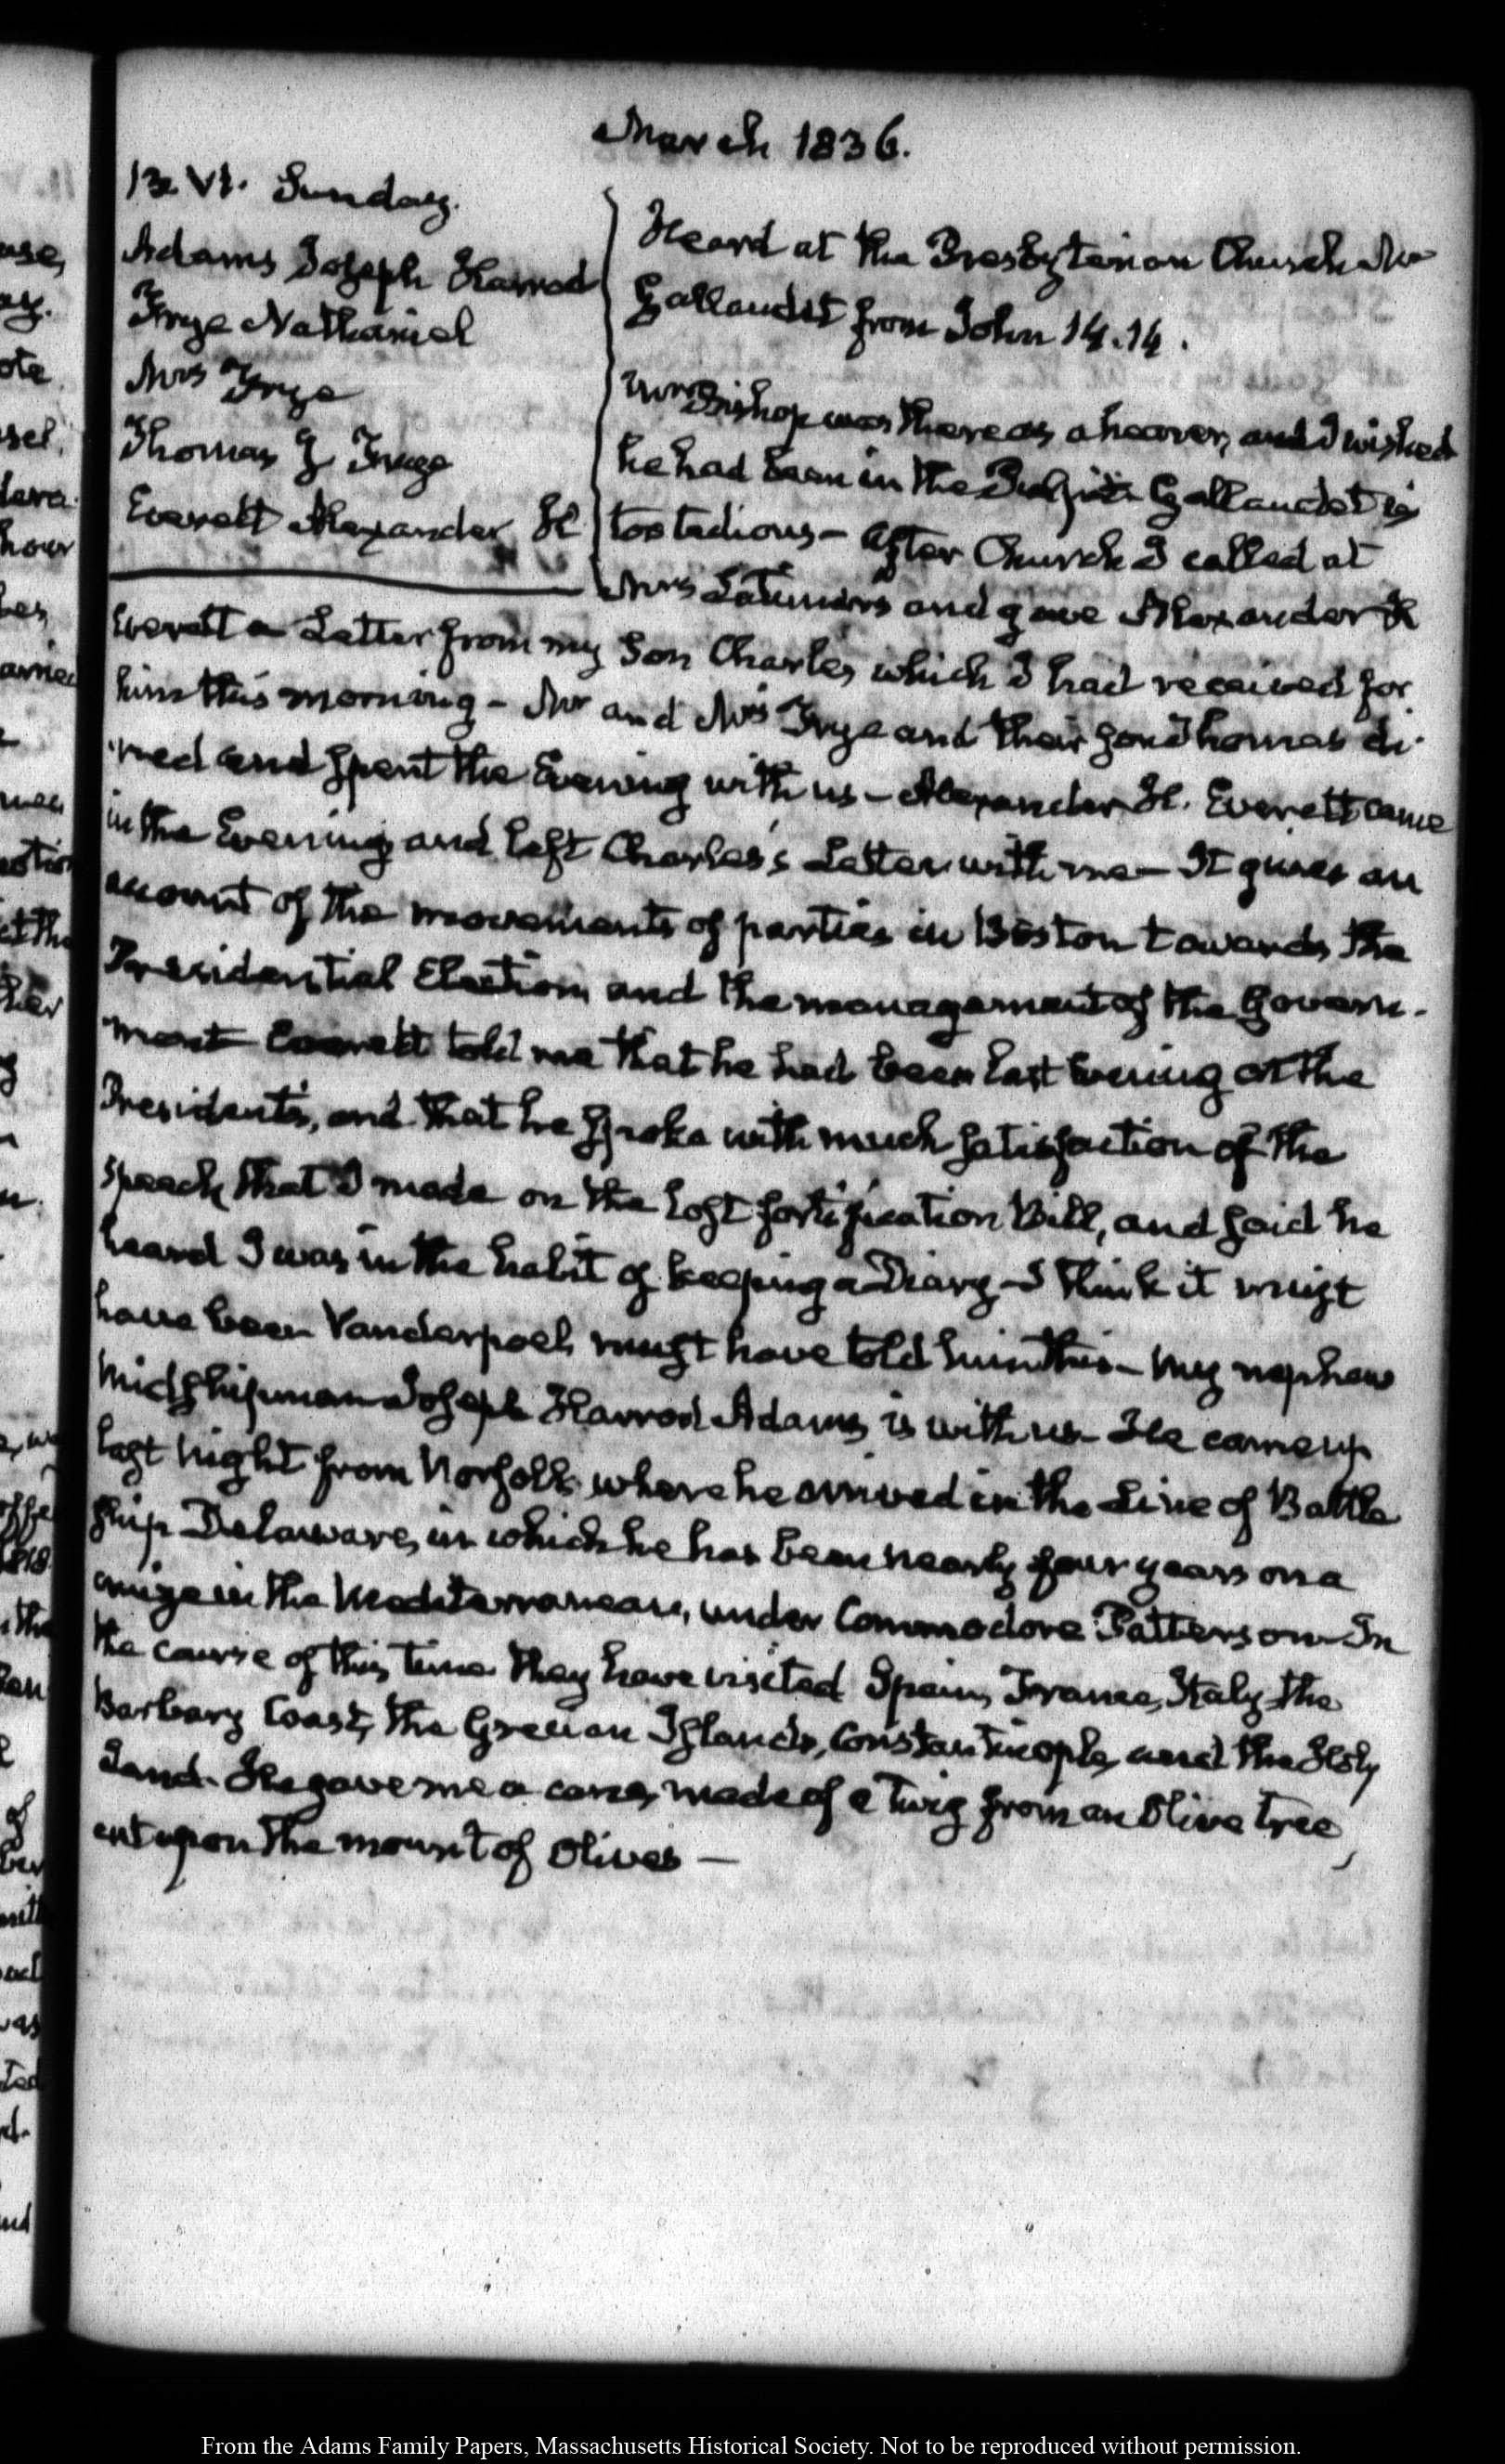 March 1836.
13. VI. Sunday.
Adams Joseph Harrod
Frye Nathaniel
Mrs Frye
Thomas J Frye
Everett Alexander H
Heard at the Presbyterian Church Mr
Gallaudet from John 14.14.
Mr Bishop was there as a hearer, and I wished
he had been in the Pulpit. Gallaudet is
too tedious— After Church I called at
Mrs Latimers and gave Alexander H
Everett a Letter from my Son Charles, which I had received for
him this morning— Mr and Mrs Frye and their son Thomas di-
ned and spent the Evening with us— Alexander H. Everett came
in the Evening and left Charles's Letter with me— It gives an
account of the movements of parties in Boston towards the
Presidential Election, and the management of the Govern-
ment Everett told me that he had been last Evening at the
Presidents, and that he spoke with much satisfaction of the
speech that I made on the lost fortification Bill, and said he
heard I was in the habit of keeping a Diary— I think it must
have been Vanderpoel, must have told him this— My nephew
Midshipman Joseph Harrod Adams, is with us— He came up
last Night from Norfolk where he arrived in the Line of Battle
ship Delaware, in which he has been nearly four years on a
cruize in the Mediterranean, under Commodore Patterson— In
the course of this time they have visited Spain, France, Italy, the
Barbary Coast, the Grecian Islands, Constantinople, and the Holy
Land. He gave me a cane, made of a twig from an Olive tree,
cut upon the mount of Olives—
From the Adams Family Papers, Massachusetts Historical Society. Not to be reproduced without permission.